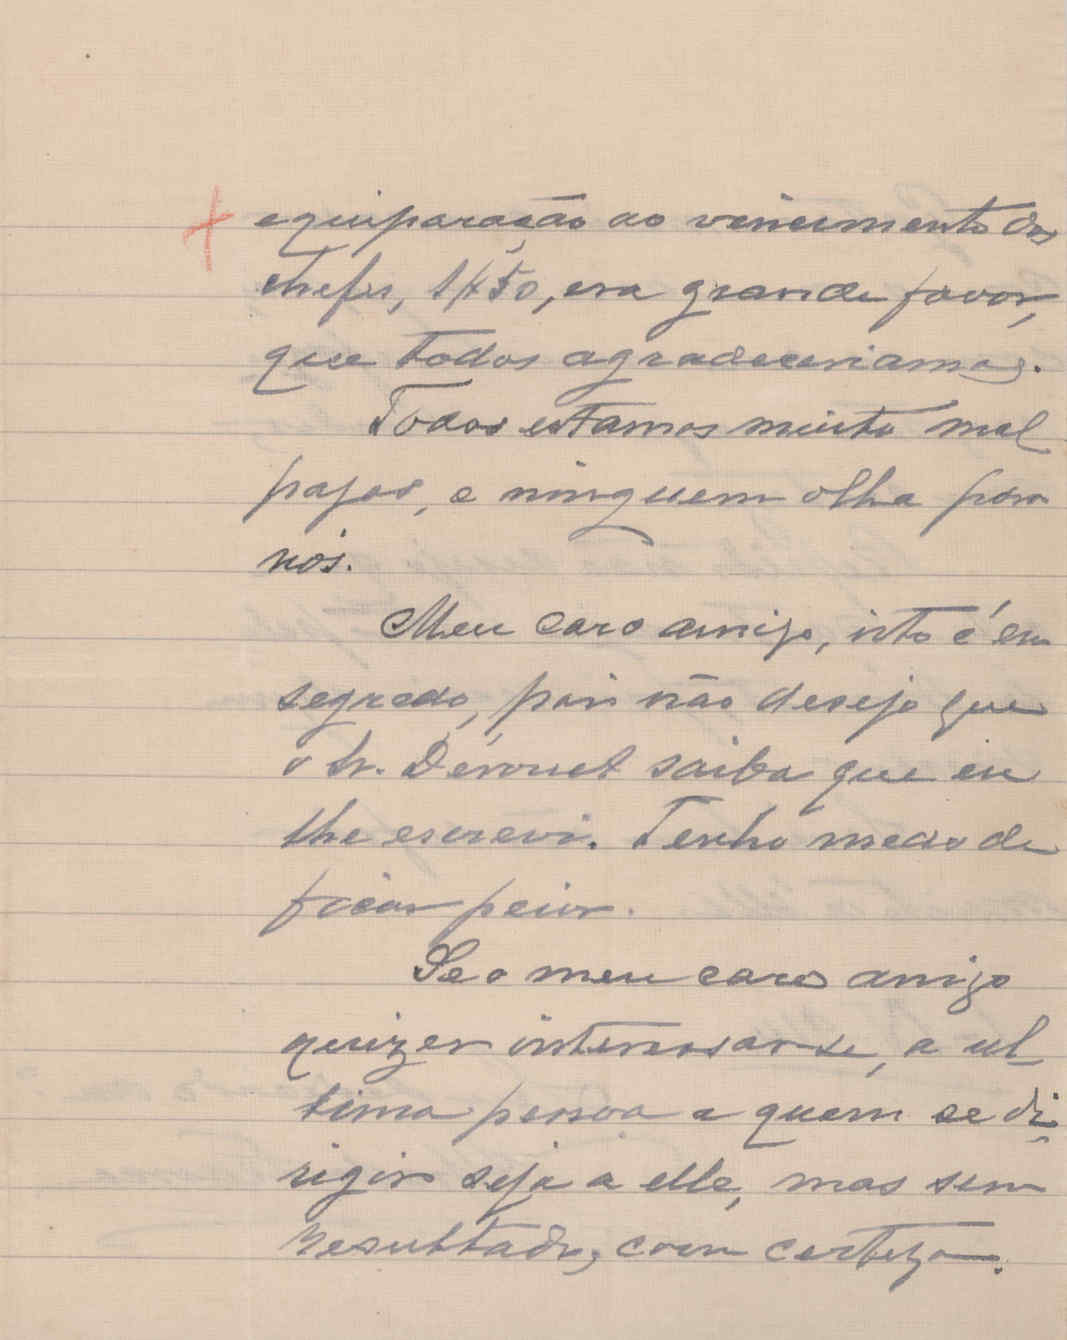 equiparação ao vencimento dos
chefes, 1$50, era grande favor,
que todos agradeceriamos.
Todos estamos muito mal
pagos, e ninguem olha para
nós.
Meu caro amigo, isto é em
segredo, pois não desejo que
o Sr. Derouet saiba que eu
lhe escrevi. Tenho medo de
ficar peior.
Se o meu caro amigo
quizer interessar-se, a ul
tima pessoa a quem se di-
rigir seja a elle, mas sem
resultado, com certeza.